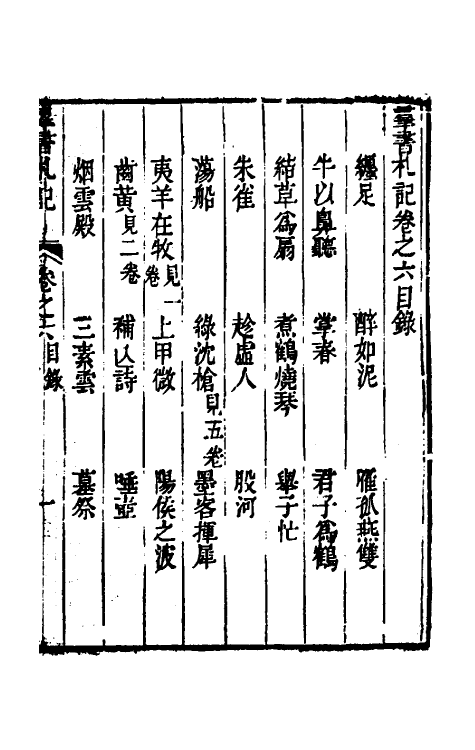 羣書札記卷之六目錄
纏足 醉如泥 雁孤燕雙
牛以鼻聽 掌春 君子爲鶴
結草爲扇 煮鶴燒琴 舉子忙
朱雀 趁虛人 股河
蕩船 綠沈槍見五卷 墨客揮犀
夷羊在牧見一卷 上甲微 陽侯之波
齒黃見二卷 補亾詩 唾壺
烟雲殿 三素雲 墓祭
羣書札記 卷之六目錄 一